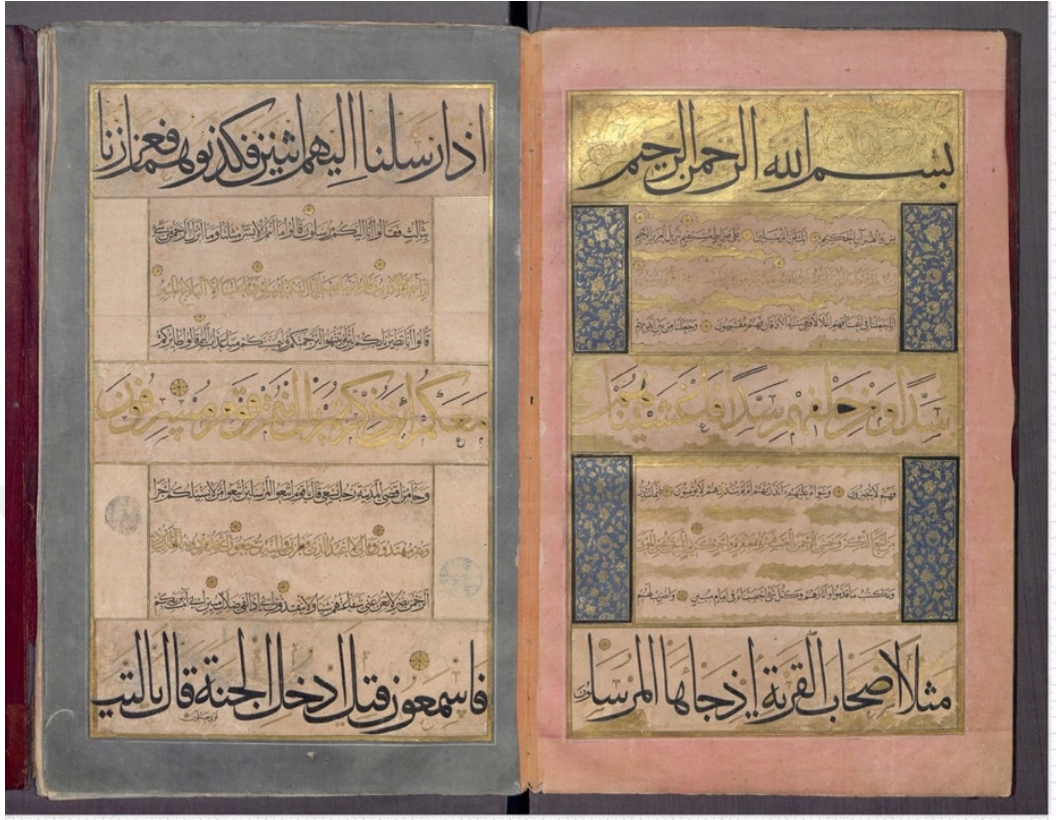 بسم الله الرحمن الرحيم
يس والقرآن الحكيم انك لمن المرسلين على صراط مستقيم تنزيل العزيز الرحيم
انا جعلنا في اعناقهم اغلالا فهي الى الاذقان فهم مقمحون وجعلنا من بين ايديهم
سدا ومن خلفهم سدا فاغشيناهم
فهم لا يبصرون وسواء عليهم ءانذرتهم ام لم تنذرهم لا يؤمنون انما تنذر
من اتبع الذكر وخشي الرحمن بالغيب فبشره
ونكتب ما قدموا واثارهم وكل شئ احصيناه في امام مبين واضرب لهم
مثلا اصحاب القرية إذ جاءها المرسلون
اذ ارسلنا اليهم اثنين فكذبوهما فعززنا
بثالث فقالوا انا اليكم مرسلون قالوا ما انتم الا بشر مثلنا وما انزل الرحمن من شئ
ان انتم الا تكذبون قالوا ربنا يعلم انا اليكم لمرسلون وما علينا الا البلاغ المبين
قالوا انا تطيرنا بكم لئن لم تنتهوا لنرجمنكم وليمسنكم منا عذاب اليم قالوا طائركم
معكم أئن ذكرتم بل انتم قوم مسرفون
وجاء من اقصى المدينة رجل يسعى قال يا قوم اتبعوا المرسلين اتبعوا من لا يسئلكم اجرا
وهم مهتدون وما لي لا اعبد الذي فطرني واليه ترجعون ءاتخذ من دونه الهة ان يردن
الرحمن بضر لا تغن عني شفاعتهم شيئا ولا ينقذون اني اذا لفي ضلال مبين اني امنت بربكم
فاسمعون قيل ادخل الجنة قال يا ليت